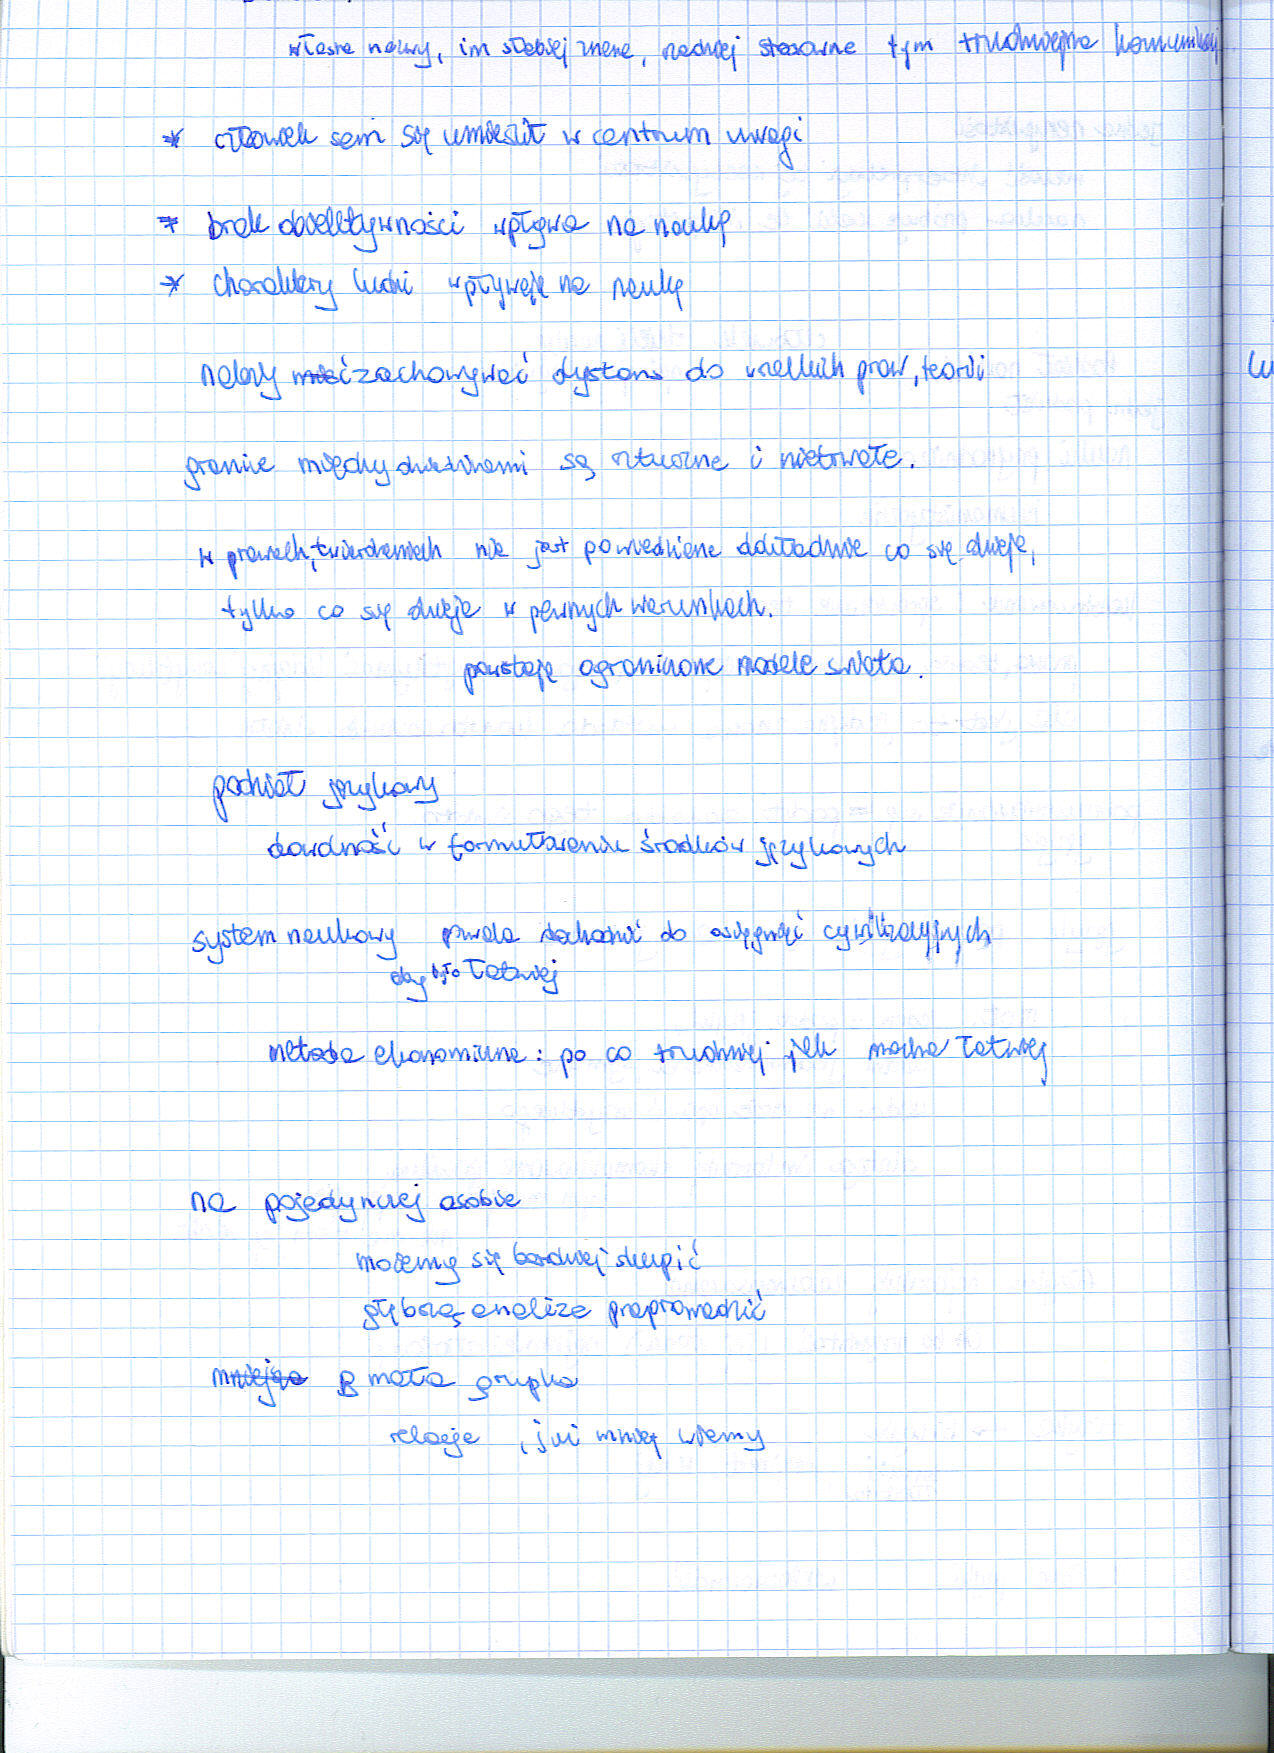 własne nazwy, im słabiej znane, rzadziej stosowane tym trudniejsza komunikacj
* człowiek sam się umieścił w centrum uwagi
* brak obiektywności wpływa na naukę
* charaktery ludzi wpływają na naukę
należy zachowywać dystans do wszelkich praw, teorii
granice między dziedzinami są sztuczne i nietrwałe.
w prawach, twierdzeniach nie jest powiedziane dokładnie co się dzieje,
tylko co się dzieje w pewnych warunkach.
powstają ograniczone modele świata.
podział językowy
dowolność w formułowaniu środków językowych
system naukowy pozwala dochodzić do osiągnięć cywilizacyjnych
aby było łatwiej
metoda ekonomiczna: po co trudniej jak można łatwiej
na pojedynczej osobie
możemy się bardziej skupić
głębszą analizę przeprowadzić
mniejsza mała grupka
relacje, już mniej wiemy